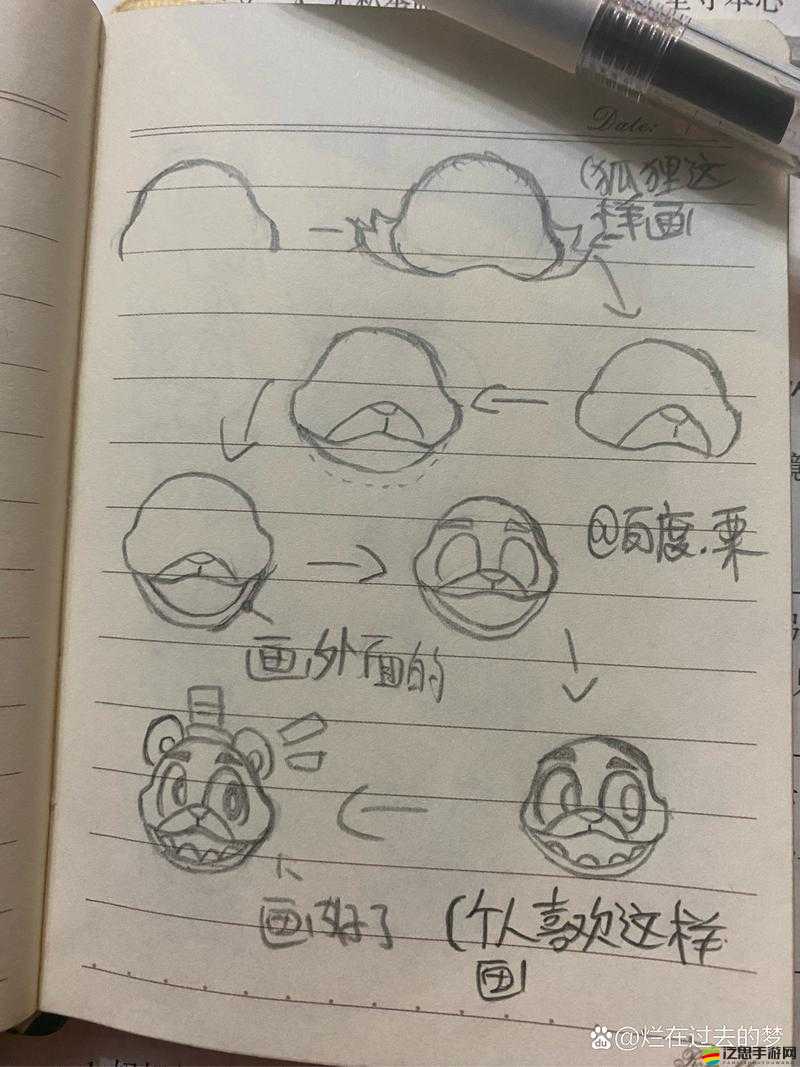 Date:
(狐狸这
样画
@百度.栗
画外面的
画好了
(个人喜欢这样
画
@烂在过去的梦
泛思手游网